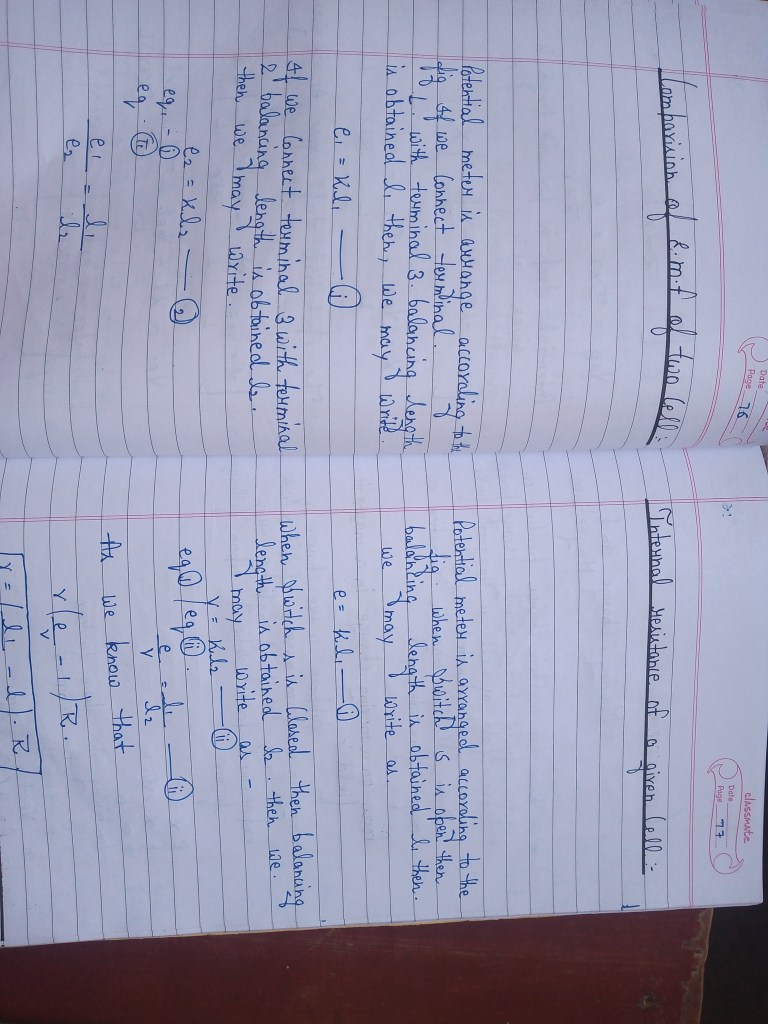 Date
Page 76
Comparision of E.m.f of two Cell:
Potential meter is arrange according to the
fig If we Connect terminal.
1. with terminal 3. balancing length
is obtained l1 then, we may write.
e1 = Kl1 —— (i)
If we Connect terminal 3 with terminal
2 balancing length is obtained l2.
then we may write.
e2 = Kl2 —— (2)
eq1 - (i)
eq. (ii)
e1/e2 = l1/l2
classmate
Date
Page 77
Internal resistance of a given Cell :-
Potential meter is arranged according to the
fig. when switch S is open then
balancing length is obtained l1 then.
we may write as.
e = Kl1 —— (i)
When switch s is Closed then balancing
length is obtained l2. then we.
may write as -
V = Kl2 —— (ii)
eq(i) / eq(ii).
e/v = l1/l2 —— (ii)
As we know that
r(e/v - 1) R.
r = (l1 - 1) . R